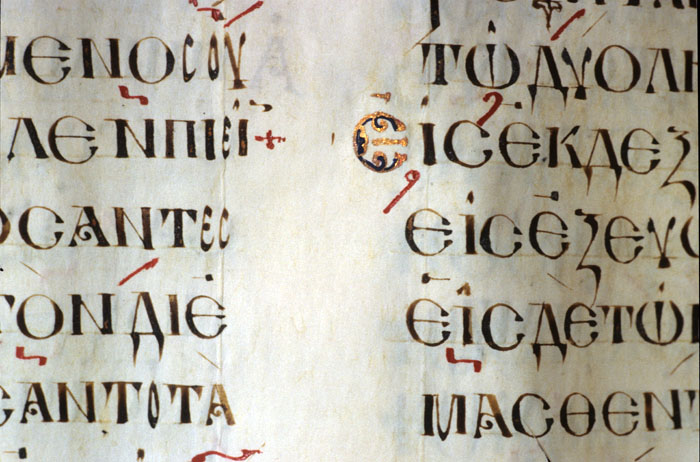 ΜΕΝΟϹΟΥ
ΛΕΝΠΙΕΪ
ΟϹΑΝΤΕϹ
ΤΟΝΔΙΕ
ϹΑΝΤΟΤΑ
ΤΩΔΥΟΛΗ
ΕΙϹΕΚΔΕΞ
ΕΙϹΕΞΕΥ
ΕΙϹΔΕΤΩ
ΜΑϹΘΕΝΤ